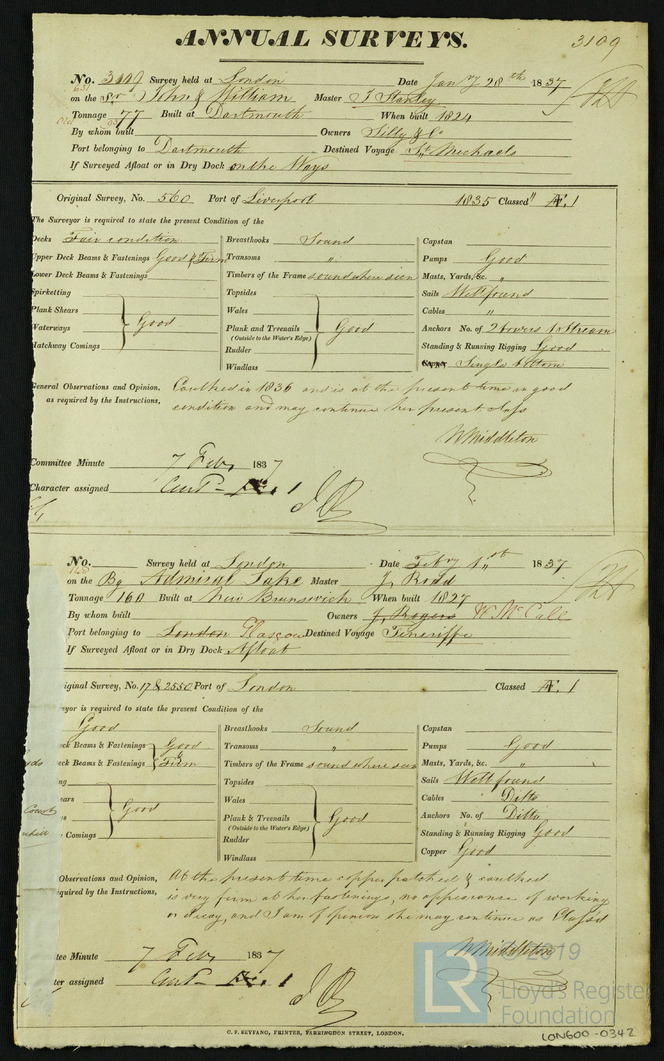 ANNUAL SURVEYS.
3109
No. 3109 Survey held at London Date Jany 28th 1837
on the Sr John & William Master J Stanley
Tonnage 77 Built at Dartmouth When built 1824
By whom built Owners Silly & Co
Port belonging to Dartmouth Destined Voyage St Michaels
If Surveyed Afloat or in Dry Dock on the Ways
Original Survey, No. 560 Port of Liverpool 1835 Classed " Æ 1
The Surveyor is required to state the present Condition of the
Decks Fair condition Breasthooks Sound Capstan
Upper Deck Beams & Fastenings Good & Firm Transoms " Pumps Good
Lower Deck Beams & Fastenings Timbers of the Frame sound where seen Masts, Yards, &c. "
Spirketting Topsides Sails Well found
Plank Shears Wales Cables "
Waterways Good Plank and Treenails Good Anchors No. of 2 bowers & Stream
(Outside to the Water's Edge)
Hatchway Comings Rudder Standing & Running Rigging Good
Windlass Single bottom
General Observations and Opinion, Caulked in 1836 and is at the present time in good
as required by the Instructions, condition and may continue her present class
W Middleton
Committee Minute 7 Feby 1837
Character assigned Cont Æ 1
No. Survey held at London Date Feby 1st 1837
on the Bg Admiral Lake Master J. Rodd
Tonnage 160 Built at New Brunswick When built 1827
By whom built Owners J. Rogers W. McCall
Port belonging to London Glascow Destined Voyage Teneriffe
If Surveyed Afloat or in Dry Dock Afloat
iginal Survey, No. 17 & 2550 Port of London Classed Æ 1
veyor is required to state the present Condition of the
Good Breasthooks Sound Capstan
eck Beams & Fastenings Good Transoms " Pumps Good
eck Beams & Fastenings & Firm Timbers of the Frame sound where seen Masts, Yards, &c. "
ng Topsides Sails Well found
ears Wales Cables Ditto
Good Plank & Treenails Good Anchors No. of Ditto
(Outside to the Water's Edge)
Comings Rudder Standing & Running Rigging Good
Windlass Copper Good
Observations and Opinion, At the present time copper patched & caulked
equired by the Instructions, is very firm at her fastenings, no appearance of working
or decay, and I am of opinion she may continue as Class'd
W Middleton
tee Minute 7 Feby 1837
ter assigned Cont Æ 1
C. F. SEYFANG, PRINTER, FARRINGDON STREET, LONDON.
LR © 2019
Lloyd's Register
Foundation
LON600-0342